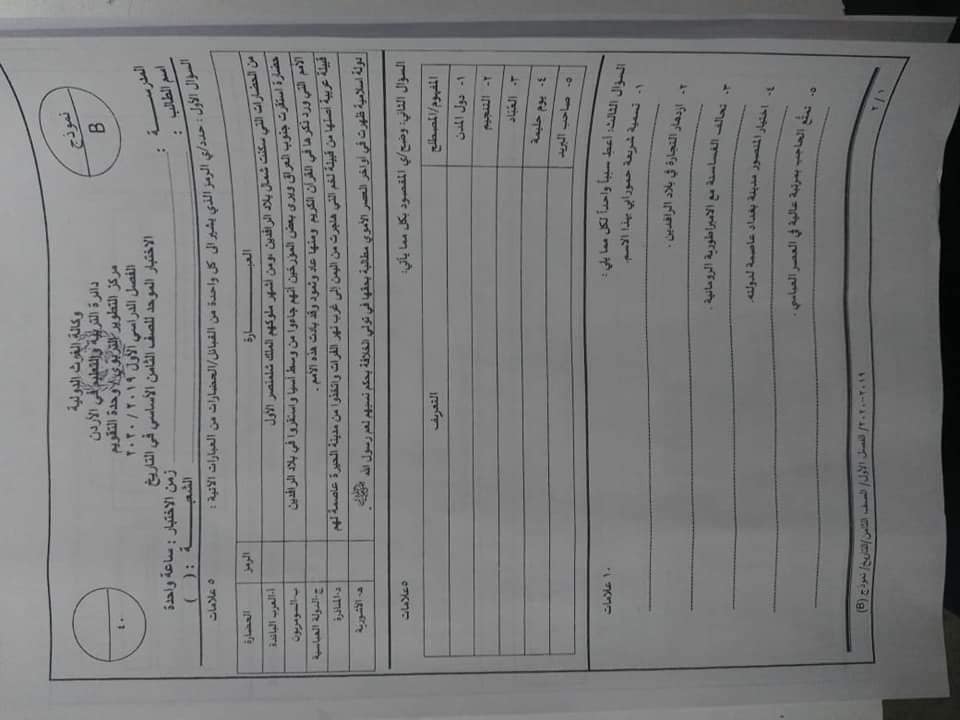 وكالة الغوث الدولية
دائرة التربية والتعليم في الأردن
مركز التطوير التربوي / وحدة التقويم
الفصل الدراسي الأول ٢٠١٩ / ٢٠٢٠
الاختبار الموحد للصف الثامن الأساسي في التاريخ
نموذج
B
٤٠
المدرسة : زمن الاختبار : ساعة واحدة
اسم الطالب : الشعبة : ( )
السؤال الأول : حدد/ي الرمز الذي يشير الى كل واحدة من القبائل/الحضارات من العبارات الاتية : ٥ علامات
العبارة الرمز الحضارة
من الحضارات التي سكنت شمال بلاد الرافدين ،ومن اشهر ملوكهم الملك شلمنصر الأول أ-العرب البائدة
حضارة استقرت جنوب العراق ويرى بعض المؤرخين أنهم جاءوا من وسط اسيا واستقروا في بلاد الرافدين ب-السومريون
الأمم التي ورد ذكرها في القرآن الكريم ومنها عاد وثمود وقد بادت هذه الأمم . ج-الدولة العباسية
قبيلة عربية اصلها من قبيلة لخم التي هاجرت من اليمن إلى غرب نهر الفرات واتخذوا من مدينة الحيرة عاصمة لهم د-المناذرة
دولة اسلامية ظهرت في أواخر العصر الأموي مطالبة بحقها في تولي الخلافة بحكم نسبهم لعم رسول الله ﷺ . هـ-الاشورية
السؤال الثاني: وضح/ي المقصود بكل مما يأتي: ٥علامات
المفهوم/المصطلح التعريف
١- دول المدن
٢- التنجيم
٣- القناد
٤- يوم حليمة
٥- صاحب البريد
السؤال الثالث: أعط سبباً واحداً لكل مما يلي : ١٠ علامات
١- تسمية شريعة حمورابي بهذا الاسم.
٢- ازدهار التجارة في بلاد الرافدين .
٣- تحالف الغساسنة مع الامبراطورية الرومانية .
٤- اختيار المنصور مدينة بغداد عاصمة لدولته.
٥- تمتّع الحاجب بمرتبة عالية في العصر العباسي .
٢/١ ٢٠١٩-٢٠٢٠/ الفصل الأول/ الصف الثامن/التاريخ/ نموذج (B)